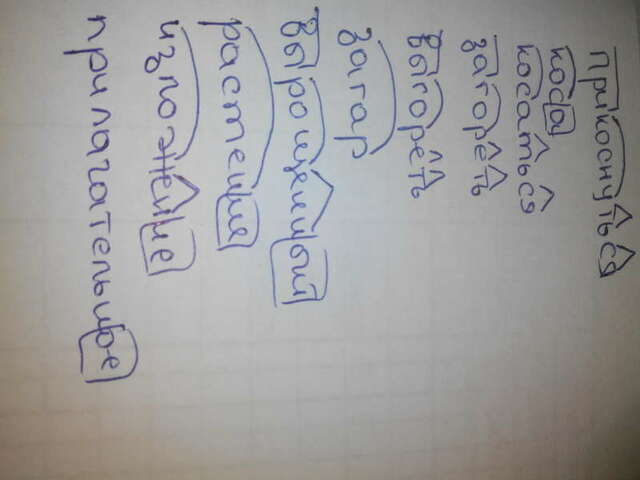 прикоснуться
коса
косаться
загореть
выгореть
загар
вырощенный
растение
изложение
прилагательное